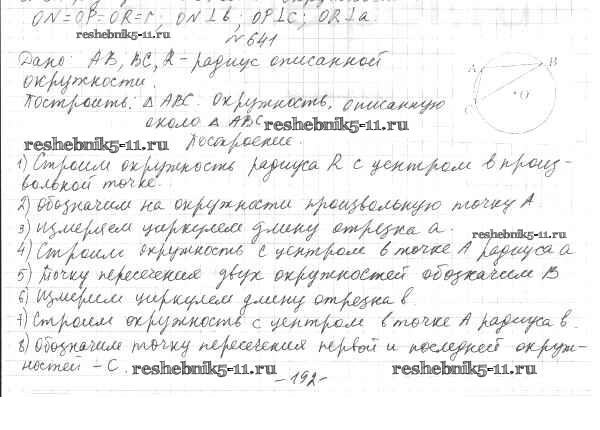 ON=OP=OR=r; ON⊥b; OP⊥c; OR⊥a.
reshebnik5-11.ru
№641
Дано: AB, BC, R - радиус описанной
окружности.
Построить: △ABC. окружность, описанную
около △ABC
reshebnik5-11.ru
reshebnik5-11.ru
Построение.
A
B
C
O
1) Строим окружность радиуса R с центром в произ-
вольной точке.
2) Обозначим на окружности произвольную точку A.
3) Измеряем циркулем длину отрезка a.
reshebnik5-11.ru
4) Строим окружность с центром в точке A радиуса a
5) Точку пересечения двух окружностей обозначим B
6) Измерим циркулем длину отрезка b.
7) Строим окружность с центром в точке A радиуса b.
8) Обозначим точку пересечения первой и последней окруж-
ностей - C.
reshebnik5-11.ru
reshebnik5-11.ru
-192-